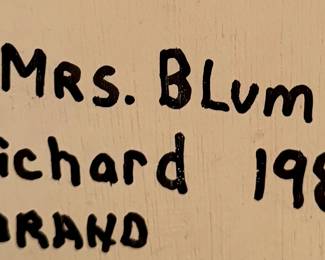 Mrs. Blum
ichard 198
RAND